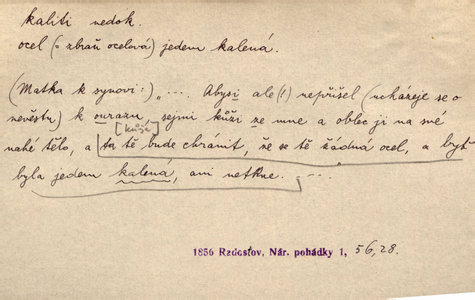 kaliti nedok.
ocel (= zbraň ocelová) jedem kalená.
(Matka k synovi:) „.... Abysi ale (!) nepřišel (ucházeje se o
nevěstu) k ourazu, sejmi kůži se mne a oblec ji na své
[kůže]
nahé tělo, a ta tě bude chránit, že se tě žádná ocel, a byť
byla jedem kalená, ani netkne. ....
1856 Rzdostov, Nár. pohádky 1, 56, 28.